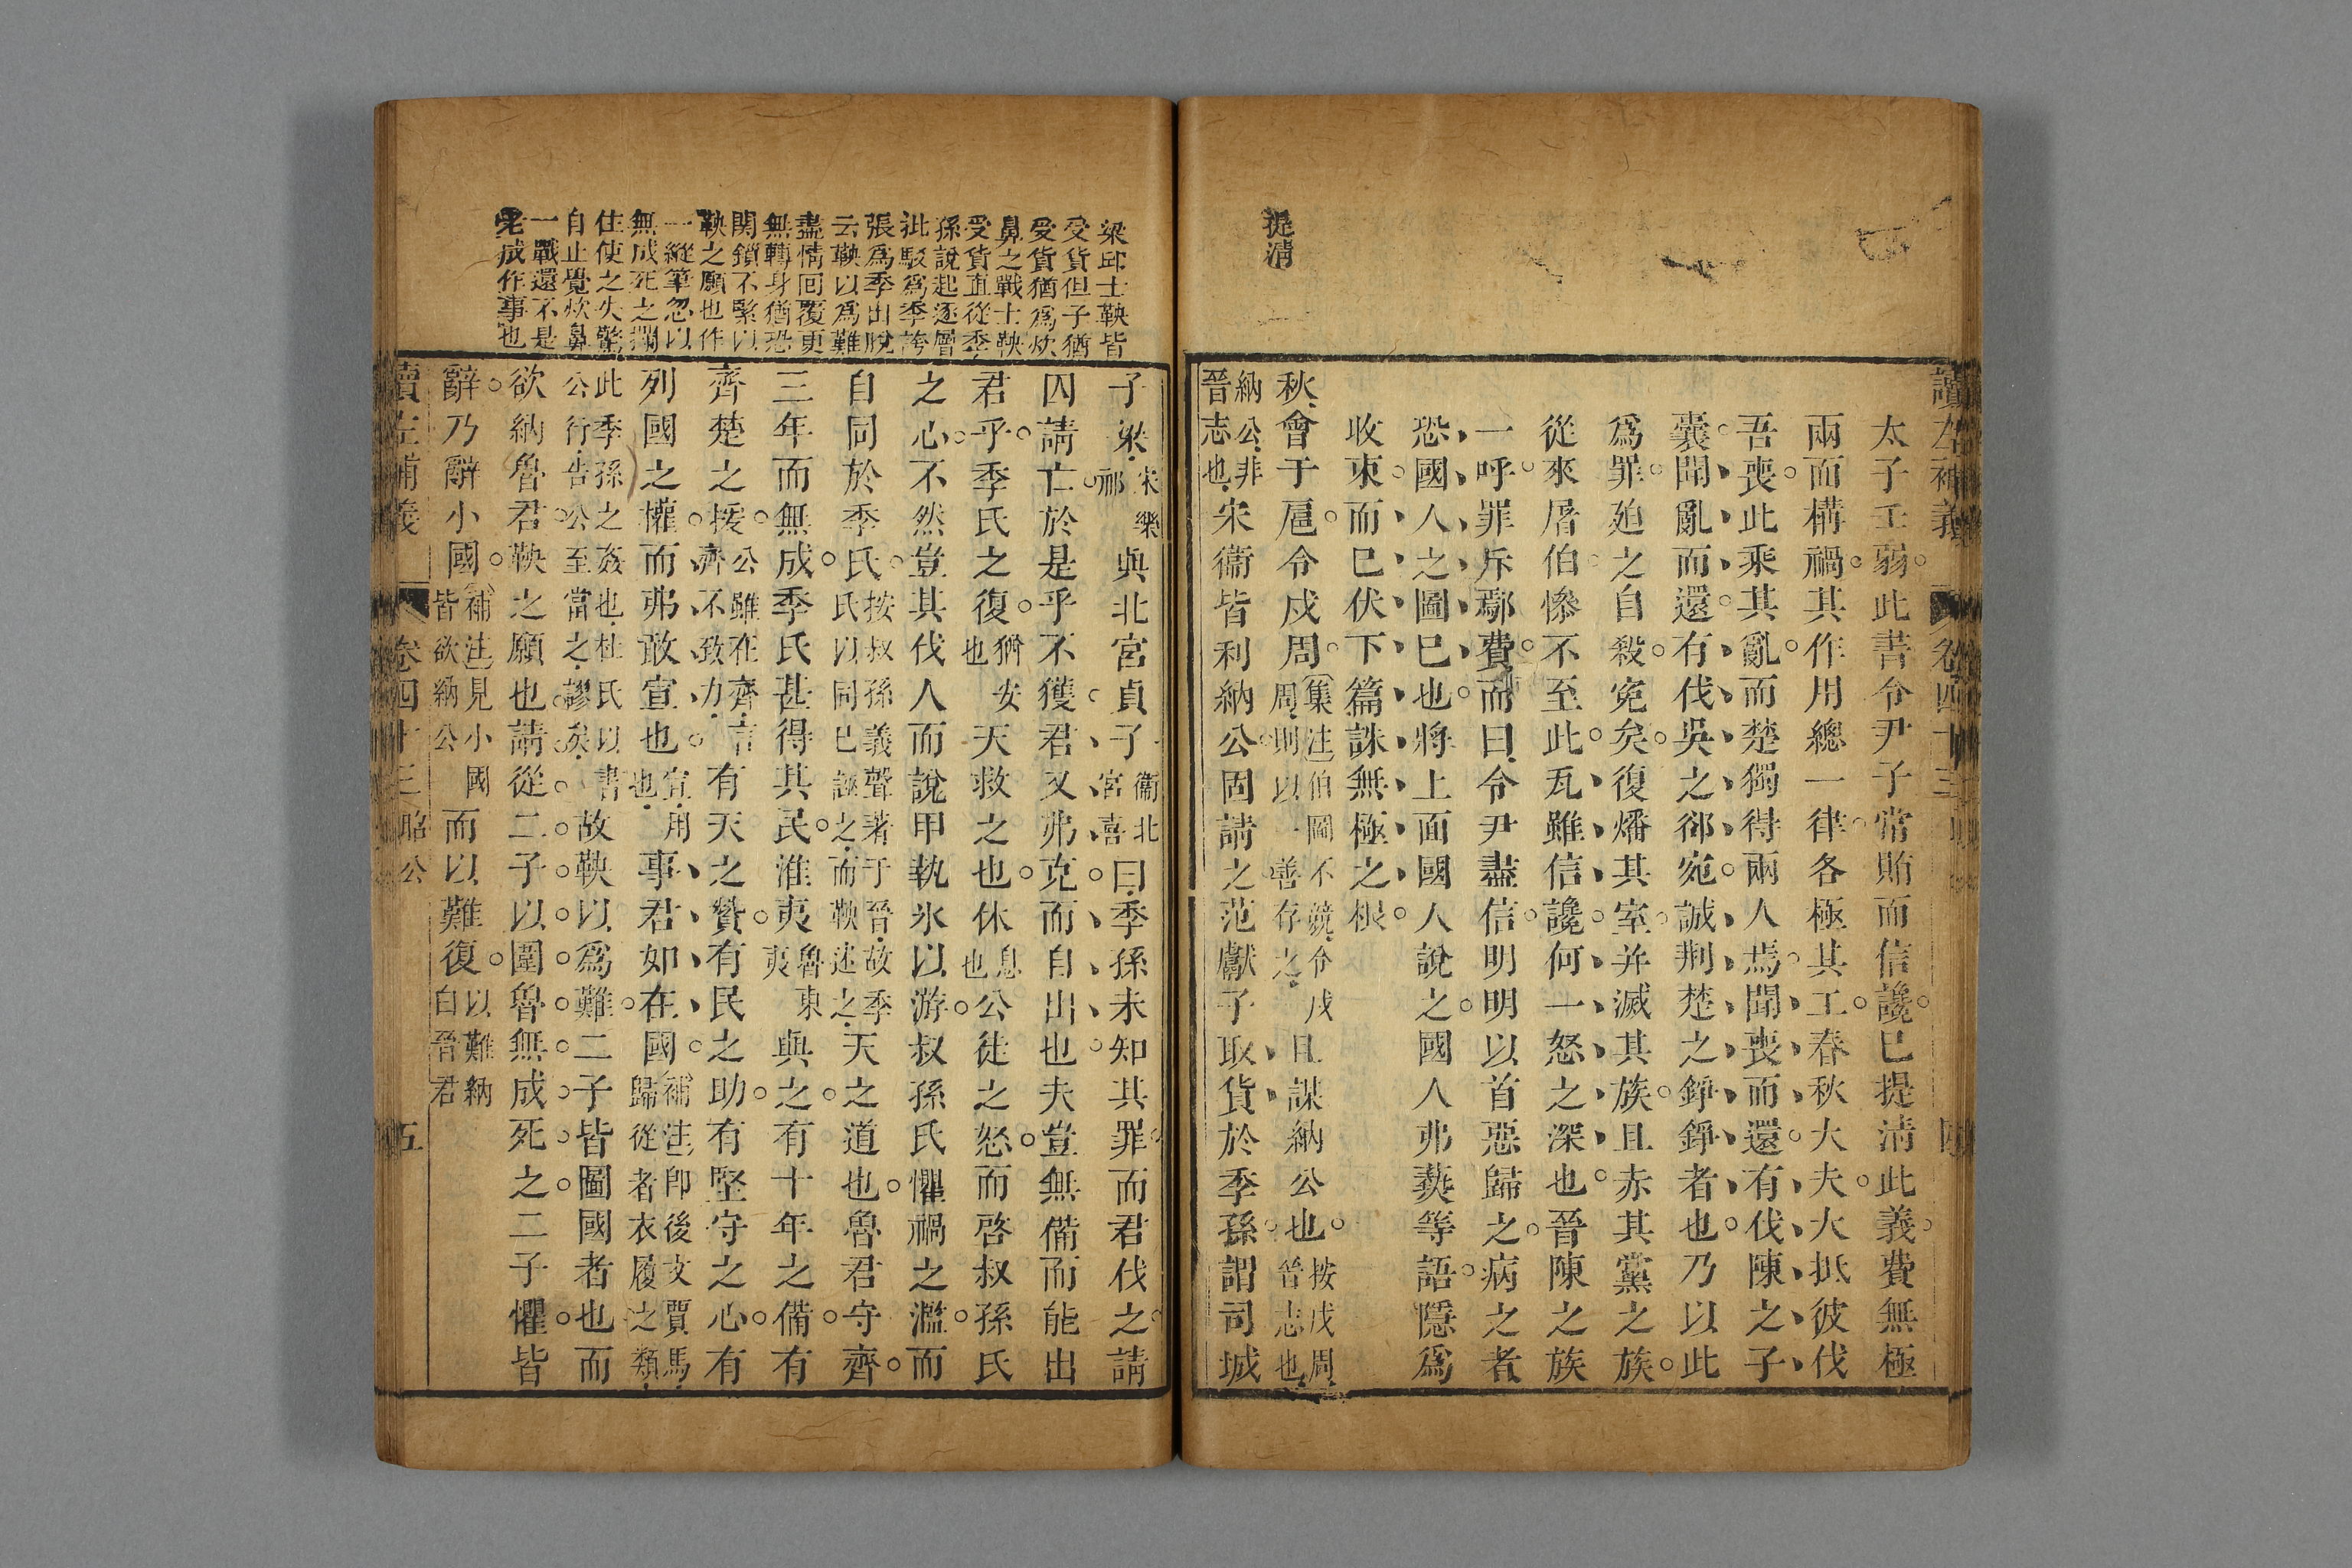 讀左補義 卷四十三
提淸
太子壬弱此書令尹子常賄而信讒已提淸此義費無極
兩而構禍其作用總一律各極其工春秋大夫大抵彼伐
吾喪此乘其亂而楚獨得兩人焉聞喪而還有伐陳之子
囊聞亂而還有伐吳之郤宛誠荆楚之錚錚者也乃以此
爲罪廹之自殺寃矣復燔其室并滅其族且赤其黨之族
從來屠伯慘不至此瓦雖信讒何一怒之深也晉陳之族
一呼罪斥鄢費而曰令尹盡信明明以首惡歸之病之者
恐國人之圖已也將上面國人說之國人弗爇等語隱爲
收束而已伏下篇誅無極之根
秋會于扈令戍周
集注伯圖不競令戍
周則以一善存之
且謀納公也
按戍周
晉志也
納公非
晉志也
宋衞皆利納公固請之范獻子取貨於季孫謂司城
梁邱士鞅皆
受貨但子猶
受貨猶爲炊
鼻之戰士鞅
受貨直從季
孫說起逐層
批駁爲季誇
張爲季出脫
云鞅以爲難
盡情囘覆更
無轉身猶恐
関鎖不緊以
鞅之願也作
一縱筆忽以
無成死之攔
住使之失驚
自止覺炊鼻
一戰還不是
老成作事也
子梁
宋樂
祁
與北宮貞子
衞北
宮喜
曰季孫未知其罪而君伐之請
囚請亡於是乎不獲君又弗克而自出也夫豈無備而能出
君乎季氏之復
猶安
也
天救之也休
息
也
公徒之怒而啓叔孫氏
之心不然豈其伐人而說甲執氷以游叔孫氏懼禍之濫而
自同於季氏
按叔孫義聲著于晉故季
氏以同已誣之而鞅述之
天之道也魯君守齊
三年而無成季氏甚得其民淮夷
魯東
夷
與之有十年之備有
齊楚之援
公雖在齊言
齊不致力
有天之贊有民之助有堅守之心有
列國之權而弗敢宣也
宣用
也
事君如在國
補注卽後文賈馬
歸從者衣履之類
此季孫之姦也杜氏以書
公行告公至當之謬矣
故鞅以爲難二子皆圖國者也而
欲納魯君鞅之願也請從二子以圍魯無成死之二子懼皆
辭乃辭小國
補注見小國
皆欲納公
而以難復
以難納
白晉君
讀左補義 卷四十三 昭公 五